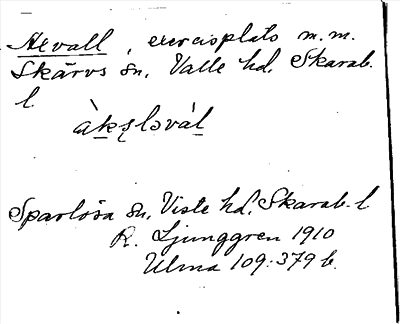 Axvall, exercisplats m.m.
Skärvs sn, Valle hd, Skarab.
l
àks̨lovál
Sparlösa sn, Viste hd, Skarab. l
R. Ljunggren 1910
Ulma 109:379 b.